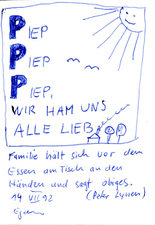 PIEP
PIEP
PIEP,
WIR HAM UNS
ALLE LIEB
Familie hält sich vor dem
Essen am Tisch an den
Händen und sagt obiges.
14 VII 92 (Peter Lynen)